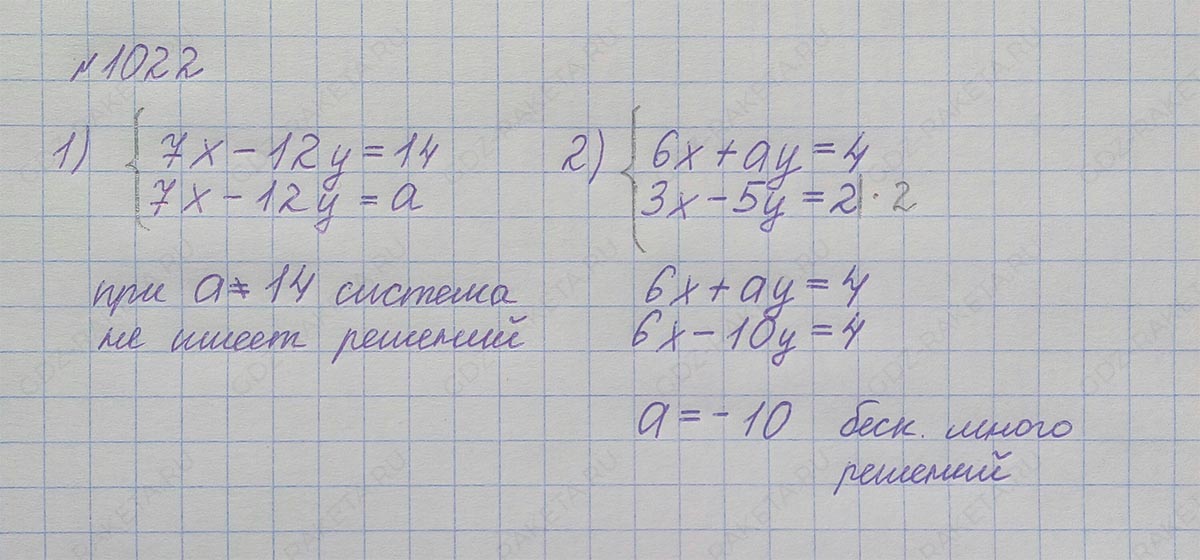 №1022
1) { 7x - 12y = 14
7x - 12y = a
при a ≠ 14 система
не имеет решений
2) { 6x + ay = 4
3x - 5y = 2 | · 2
6x + ay = 4
6x - 10y = 4
a = - 10 беск. много
решений